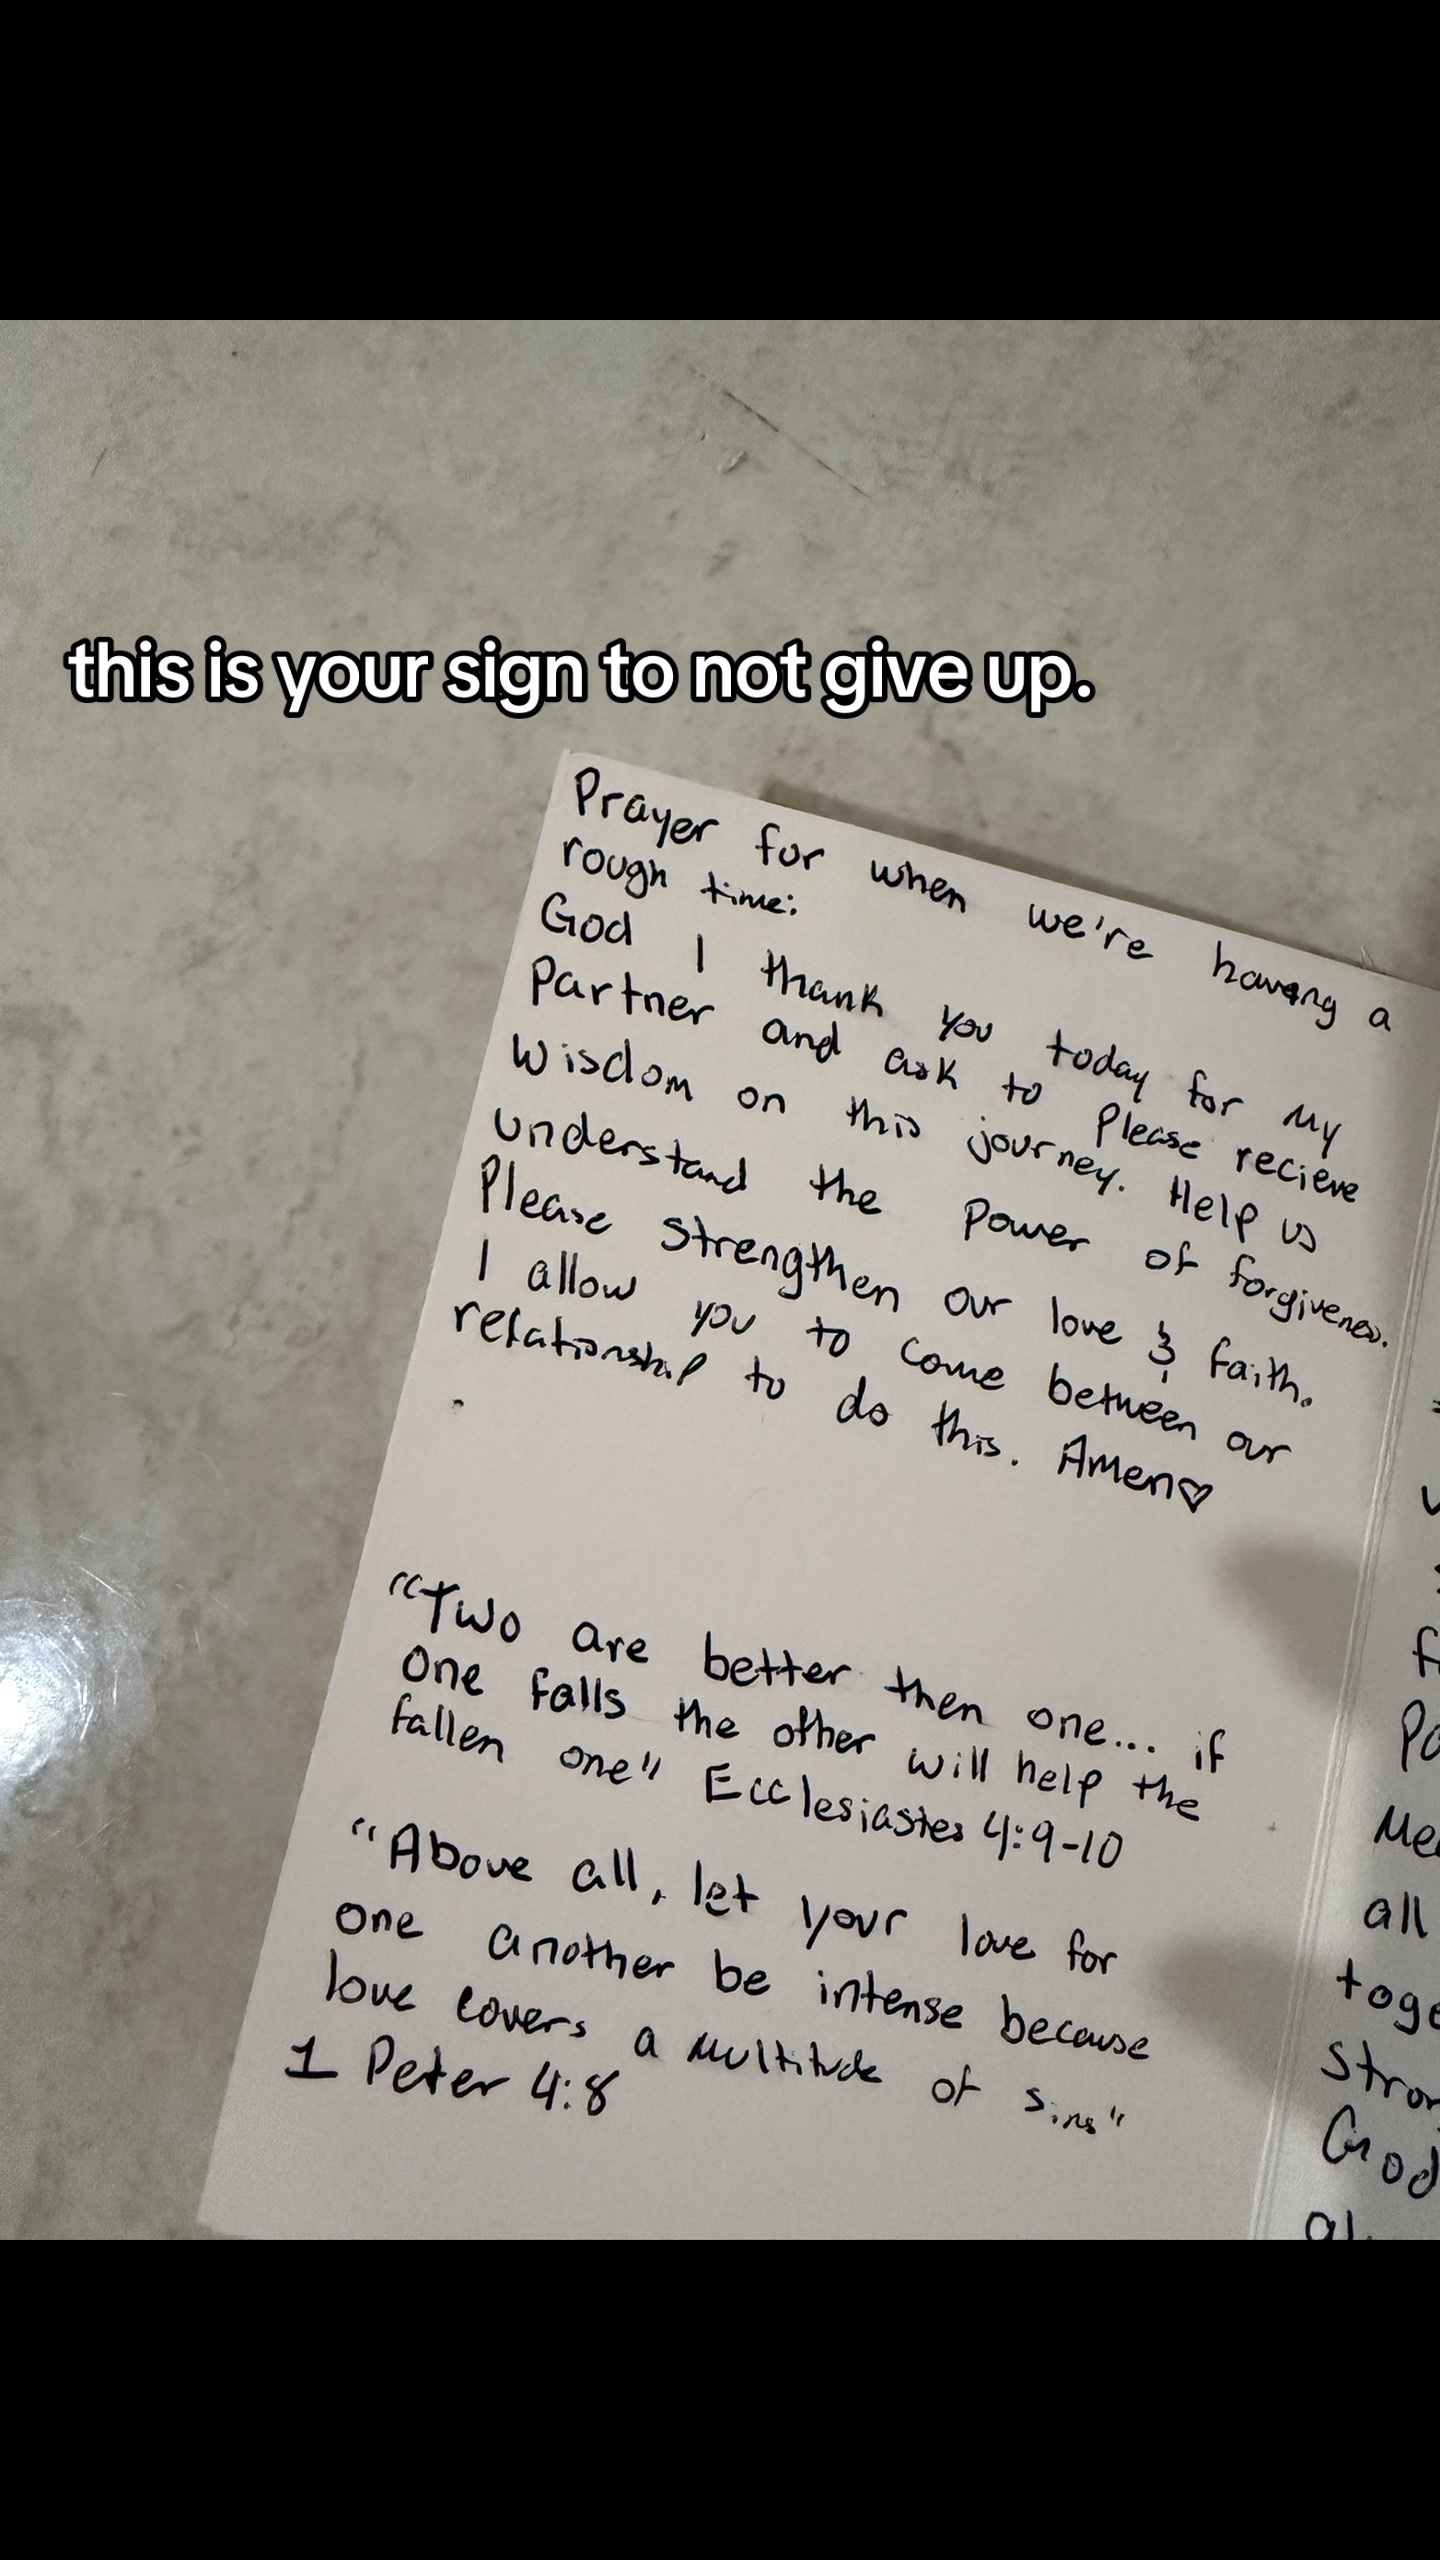 this is your sign to not give up.
Prayer for when we're having a
rough time:
God I thank you today for my
Partner and ask to Please recieve
Wisdom on this journey. Help us
understand the Power of forgiveness.
Please strengthen our love & faith.
I allow you to come between our
relationship to do this. Amen♡
"Two are better then one... if
one falls the other will help the
fallen one" Ecclesiastes 4:9-10
"Above all, let your love for
one another be intense because
love covers a multitude of sins"
1 Peter 4:8
all
God